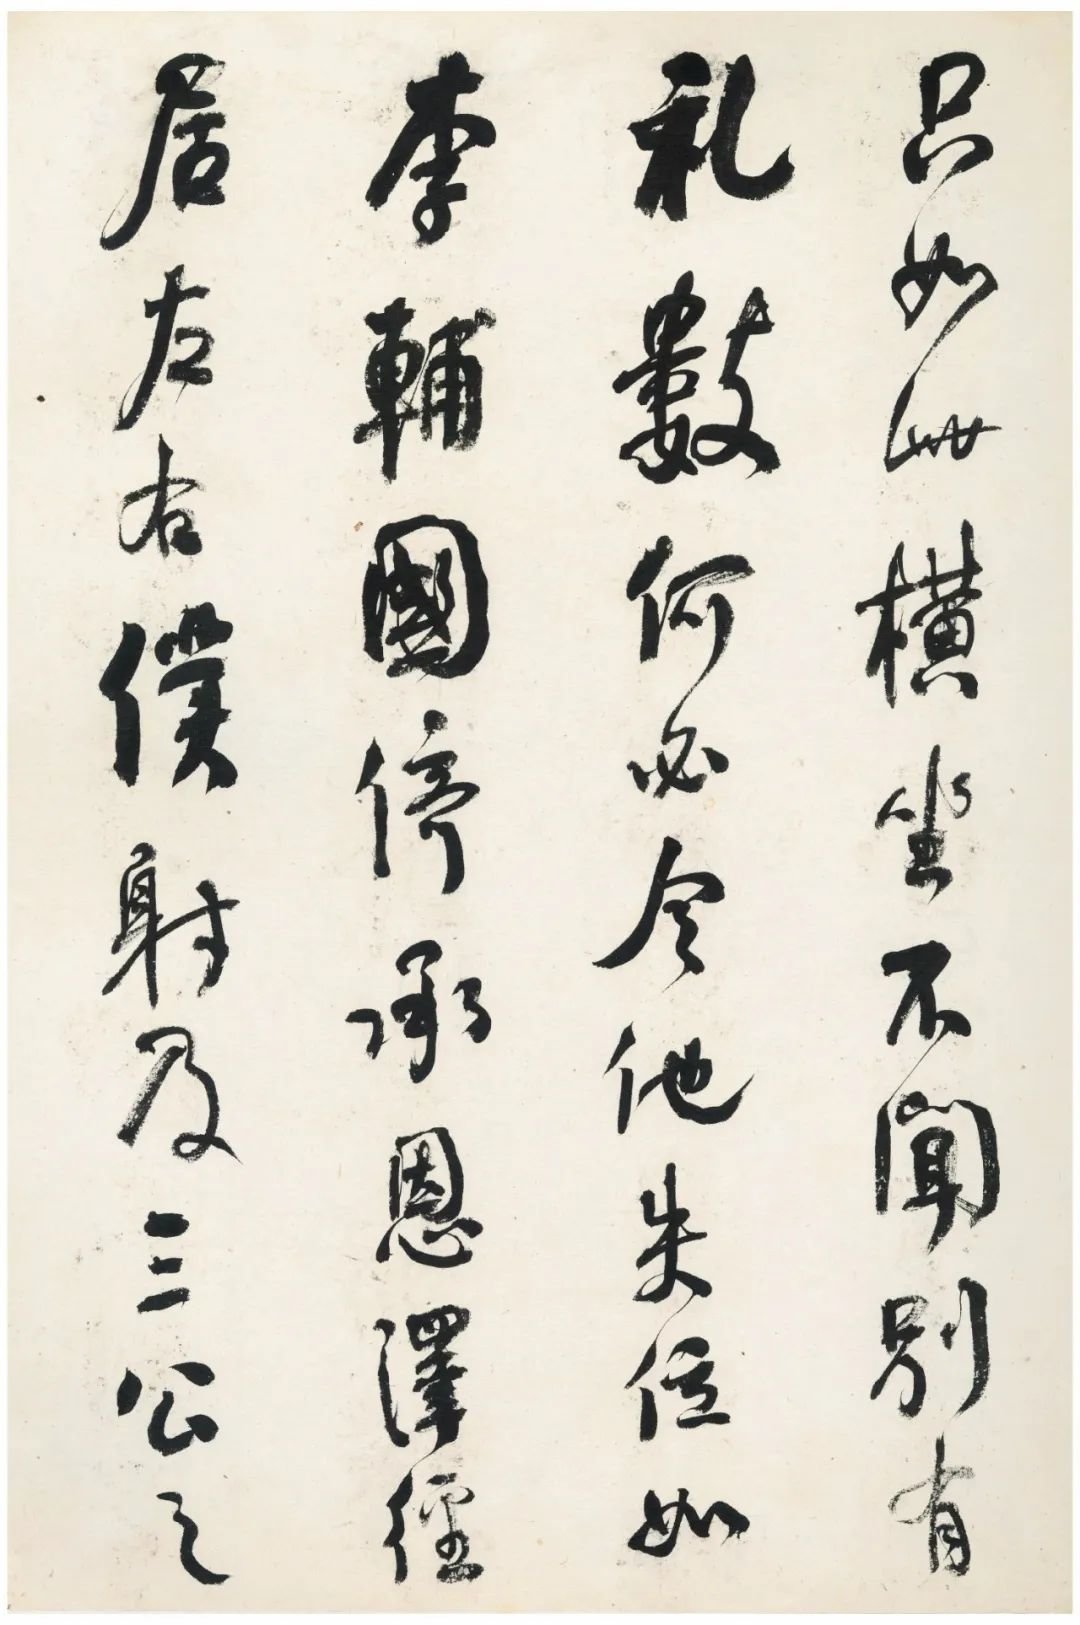 只如此横坐不闻别有
礼數何必令他失位如
李輔國倚承恩澤徑
居左右僕射及三公之